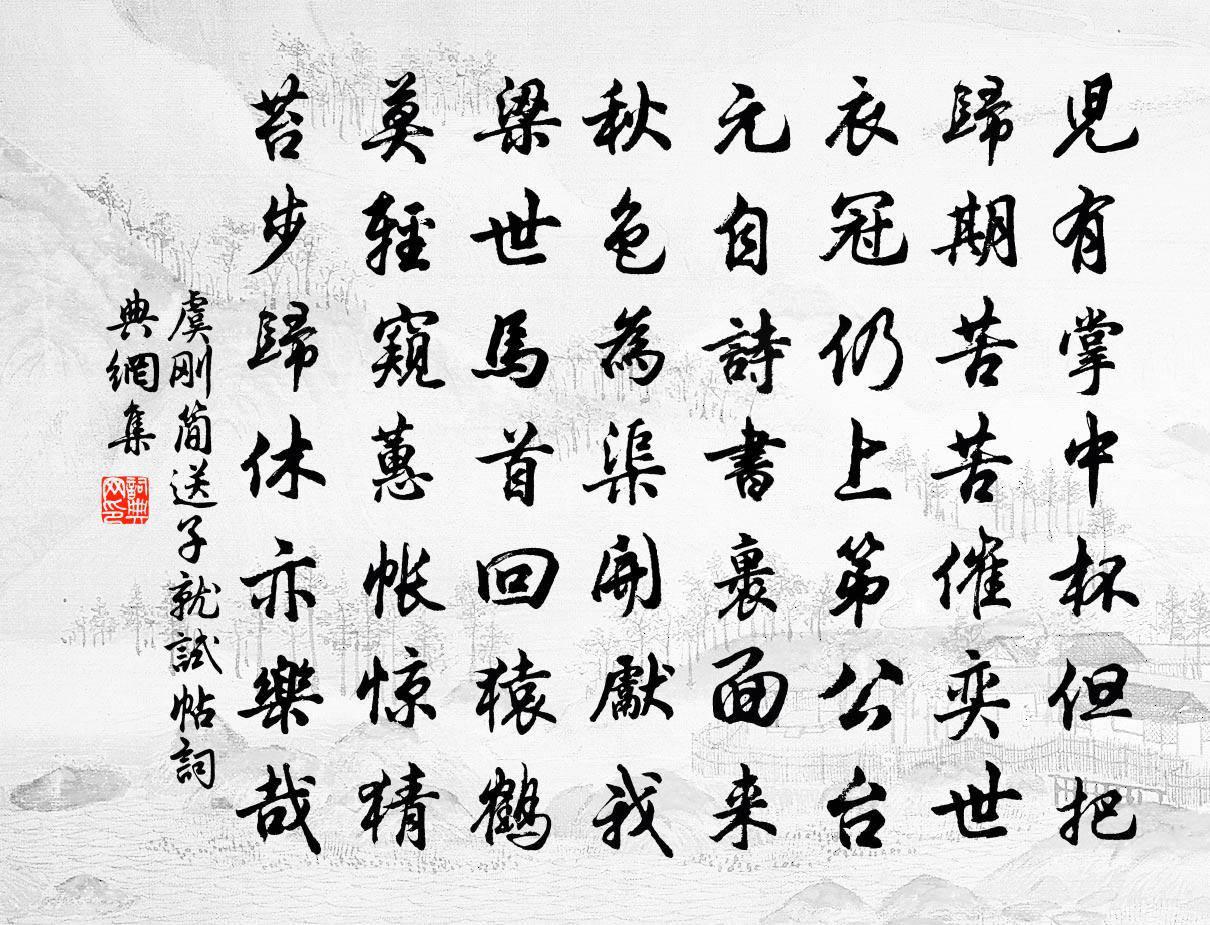 見有掌中杯但把
歸期苦苦催奕世
衣冠仍上第公台
元自詩書裹面来
秋色為渠開獻我
梁世馬首回猿鶴
莫輕窺蕙帐惊猜
苔步歸休亦樂哉
虞刚简送子就試帖詞
典網集
詞典网印